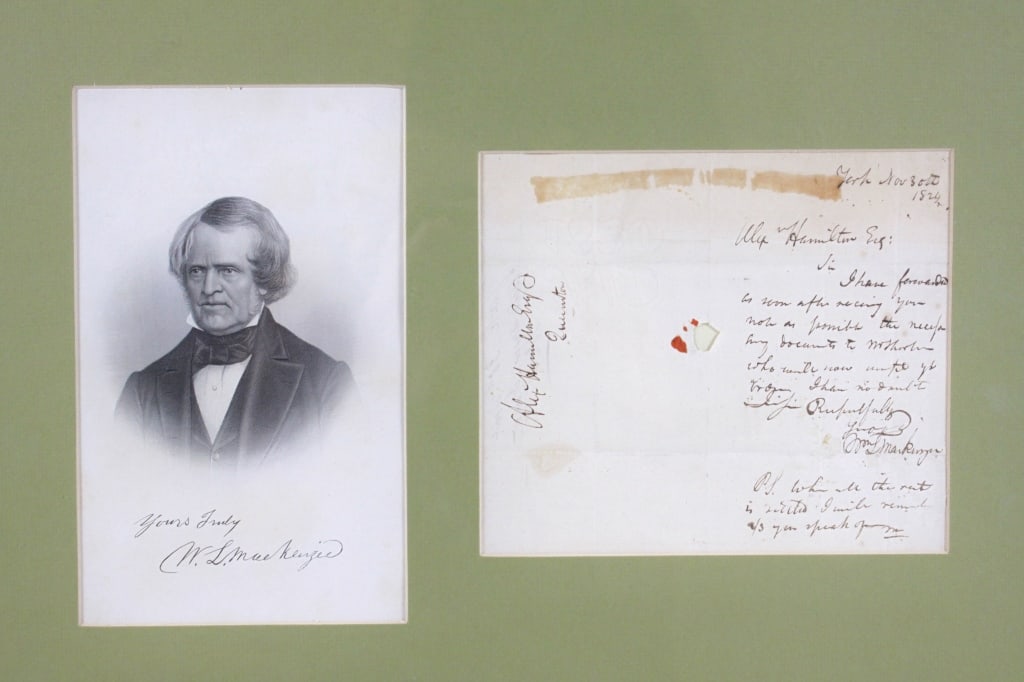 Yours Truly
W. L. Mackenzie
York Nov 30th
1824
Alexr Hamilton Esq:
Sir
I have forwarded
as soon after receiving your
note as possible the neces
sary documents to
who will now
I have no doubt
Respectfully
Yours
Wm L Mackenzie
P.S. When all the rest
is settled I will
you speak of
Alexr Hamilton Esqr
Queenston